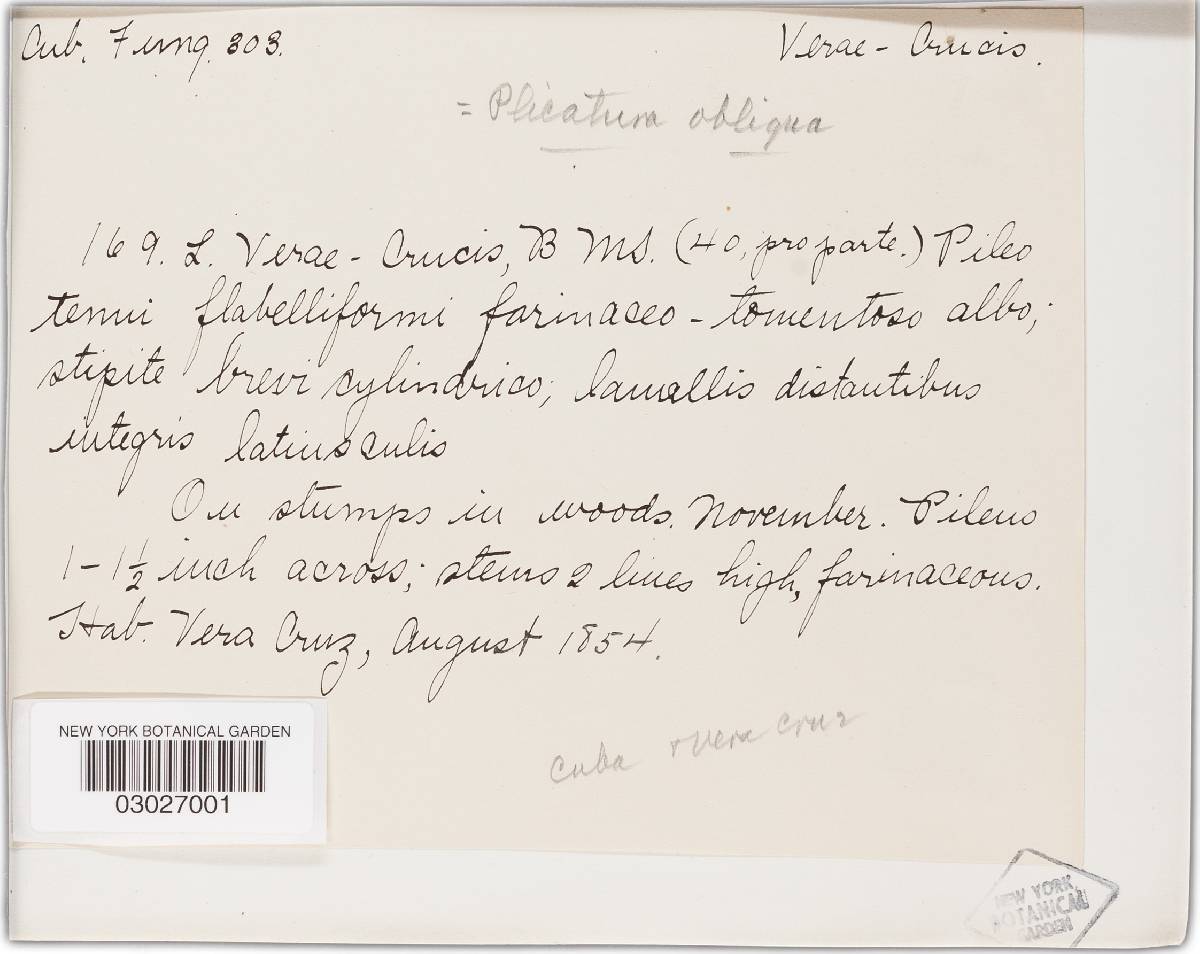 Cub. Fung. 303.
Verae-Crucis.
= Plicatura obliqua
169. L. Verae-Crucis, B MS. (40, pro parte.) Pileo
tenui flabelliformi farinaceo-tomentoso albo;
stipite brevi cylindrico; lamellis distantibus
integris latiusculis
On stumps in woods. November. Pileus
1-1½ inch across; stems 2 lines high, farinaceous.
Hab. Vera Cruz, August 1854.
Cuba & Vera Cruz
NEW YORK BOTANICAL GARDEN
03027001
NEW YORK
BOTANICAL
GARDEN